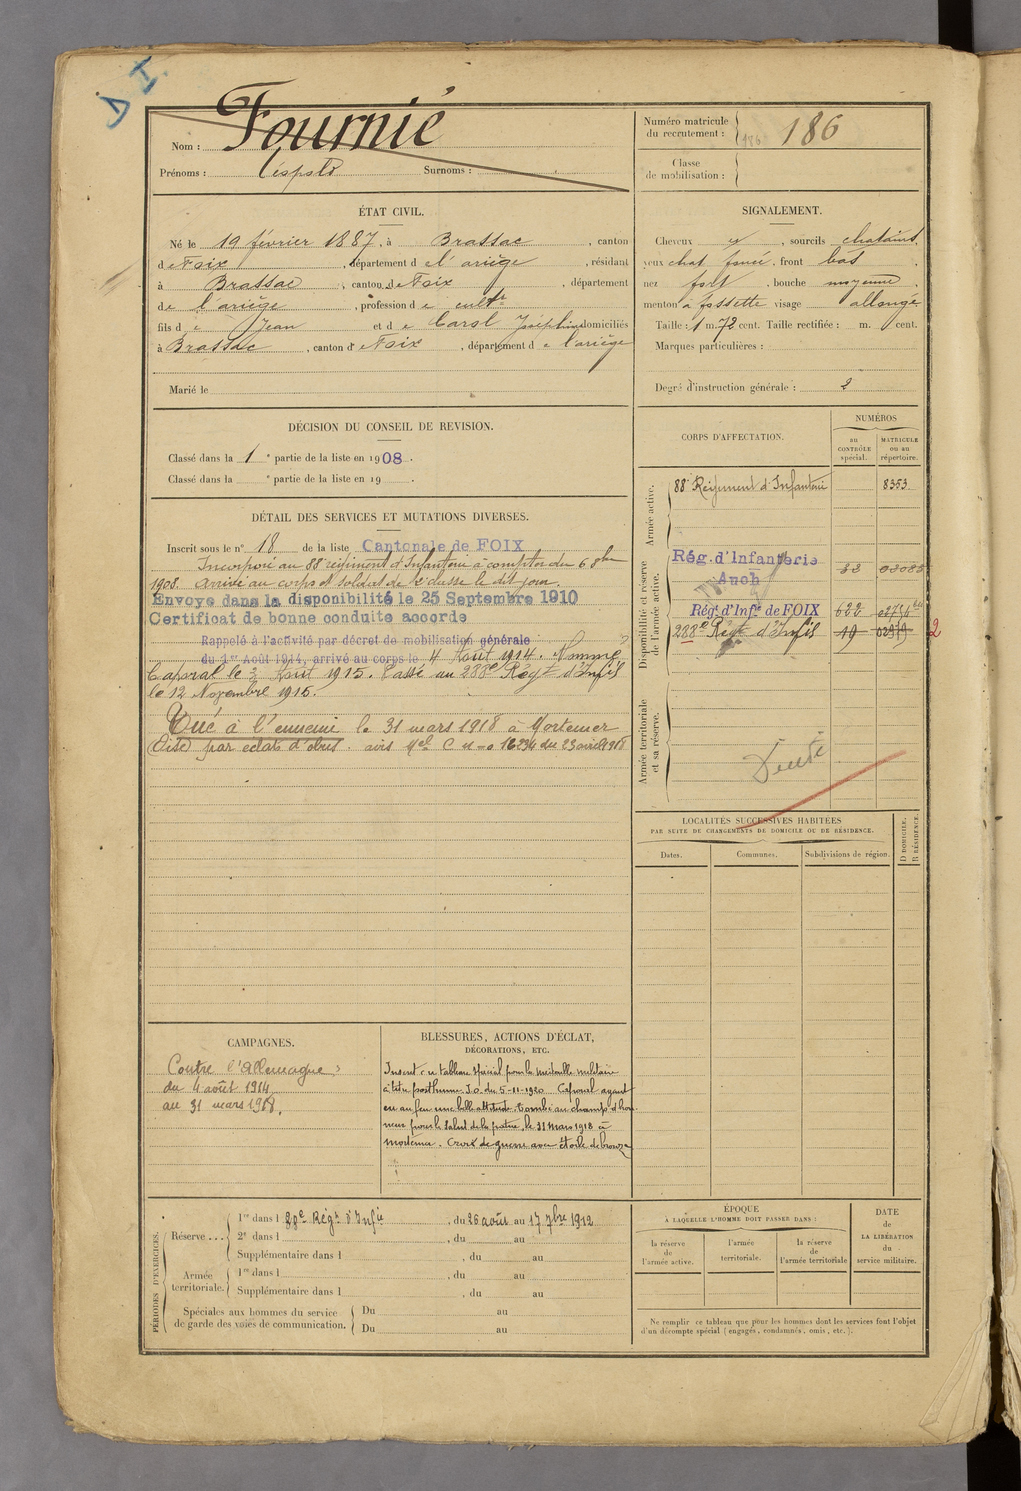 D I.
Nom : Fournié
Prénoms : Léopold Surnoms :
Numéro matricule
du recrutement : 186 186
Classe
de mobilisation :
ÉTAT CIVIL.
Né le 19 février 1887, à Brassac, canton
de Foix, département de l'ariège, résidant
à Brassac, canton de Foix, département
de l'ariège, profession de cultr
fils de Jean et de Carol Joséphine domiciliés
à Brassac, canton de Foix, département de l'ariège
Marié le
SIGNALEMENT.
Cheveux et, sourcils chatains,
yeux chat foncé, front bas,
nez fort, bouche moyenne,
menton à fossette visage allongé
Taille : 1 m. 72 cent. Taille rectifiée : m. cent.
Marques particulières :
Degré d'instruction générale : 2
DÉCISION DU CONSEIL DE REVISION.
Classé dans la 1e partie de la liste en 1908.
Classé dans la e partie de la liste en 19 .
DÉTAIL DES SERVICES ET MUTATIONS DIVERSES.
Inscrit sous le n° 18 de la liste Cantonale de FOIX
Incorporé au 88e régiment d'Infanterie à compter du 6 8bre
1908. Arrivé au corps et soldat de 2e classe le dit jour.
Envoyé dans la disponibilité le 25 Septembre 1910
Certificat de bonne conduite accordé
Rappelé à l'activité par décret de mobilisation générale
du 1er Août 1914, arrivé au corps le 4 Août 1914. Nommé
Caporal le 3 Août 1915. Passé au 288e Régt d'Infie
le 12 Novembre 1915.
Tué à l'ennemi le 31 mars 1918 à Mortemer
(Oise) par éclats d'obus. avis Mel C no 16234 du 23 avril 1918
CORPS D'AFFECTATION.
NUMÉROS
au
CONTRÔLE
spécial.
MATRICULE
ou au
répertoire.
Armée active.
88e Régiment d'Infanterie 8353
Disponibilité et réserve
de l'armée active.
Rég. d'Infanterie
Auch 33 03085
Régt d'Infie de FOIX 622
288e Régt d'Infie 19 2
Armée territoriale
et sa réserve.
LOCALITÉS SUCCESSIVES HABITÉES
PAR SUITE DE CHANGEMENTS DE DOMICILE OU DE RÉSIDENCE.
Dates. Communes. Subdivisions de région.
D DOMICILE.
R RÉSIDENCE.
CAMPAGNES.
Contre l'Allemagne
du 4 août 1914
au 31 mars 1918.
BLESSURES, ACTIONS D'ÉCLAT,
DÉCORATIONS, ETC.
Inscrit au tableau spécial pour la médaille militaire
à titre posthume J.O. du 5-11-1920 Caporal ayant
eu au feu une belle attitude. Tombé au champ d'hon
neur pour le salut de la patrie, le 31 Mars 1918 à
Mortemer. Croix de guerre avec étoile de bronze
PÉRIODES D'EXERCICES.
Réserve ... 1re dans l 88e Régt d'Infie, du 26 août au 17 7bre 1912
2e dans l , du au
Supplémentaire dans l , du au
Armée
territoriale. 1re dans l , du au
Supplémentaire dans l , du au
Spéciales aux hommes du service
de garde des voies de communication. Du au
Du au
ÉPOQUE
À LAQUELLE L'HOMME DOIT PASSER DANS :
la réserve
de
l'armée active.
l'armée
territoriale.
la réserve
de
l'armée territoriale
DATE
de
LA LIBÉRATION
du
service militaire.
Ne remplir ce tableau que pour les hommes dont les services font l'objet
d'un décompte spécial (engagés, condamnés, omis, etc.).